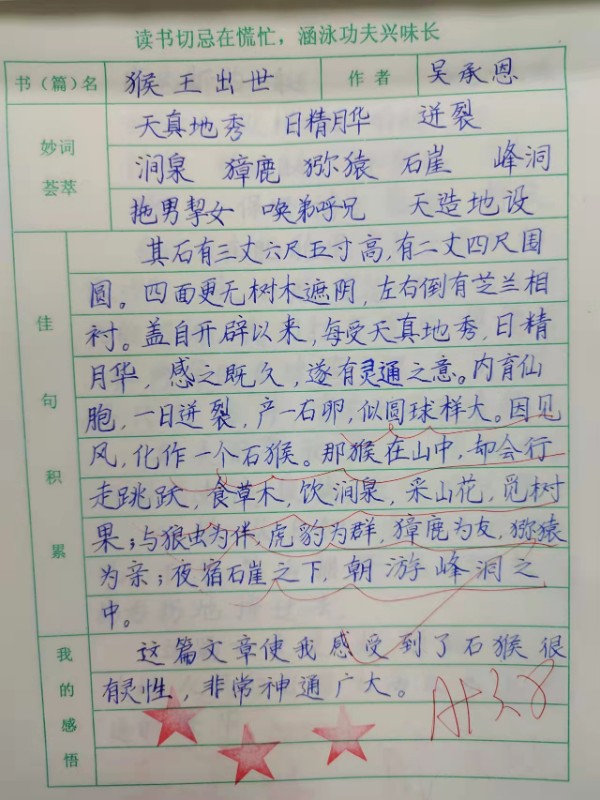 读书切忌在慌忙，涵泳功夫兴味长
书（篇）名 猴王出世 作者 吴承恩
妙词荟萃
天真地秀 日精月华 迸裂
涧泉 獐鹿 猕猿 石崖 峰洞
拖男挈女 唤弟呼兄 天造地设
佳句积累
其石有三丈六尺五寸高,有二丈四尺围
圆。四面更无树木遮阴,左右倒有芝兰相
衬。盖自开辟以来,每受天真地秀,日精
月华,感之既久,遂有灵通之意。内育仙
胞,一日迸裂,产一石卵,似圆球样大。因见
风,化作一个石猴。那猴在山中,却会行
走跳跃,食草木,饮涧泉,采山花,觅树
果;与狼虫为伴,虎豹为群,獐鹿为友,猕猿
为亲;夜宿石崖之下,朝游峰洞之
中。
我的感悟
这篇文章使我感受到了石猴很
有灵性,非常神通广大。